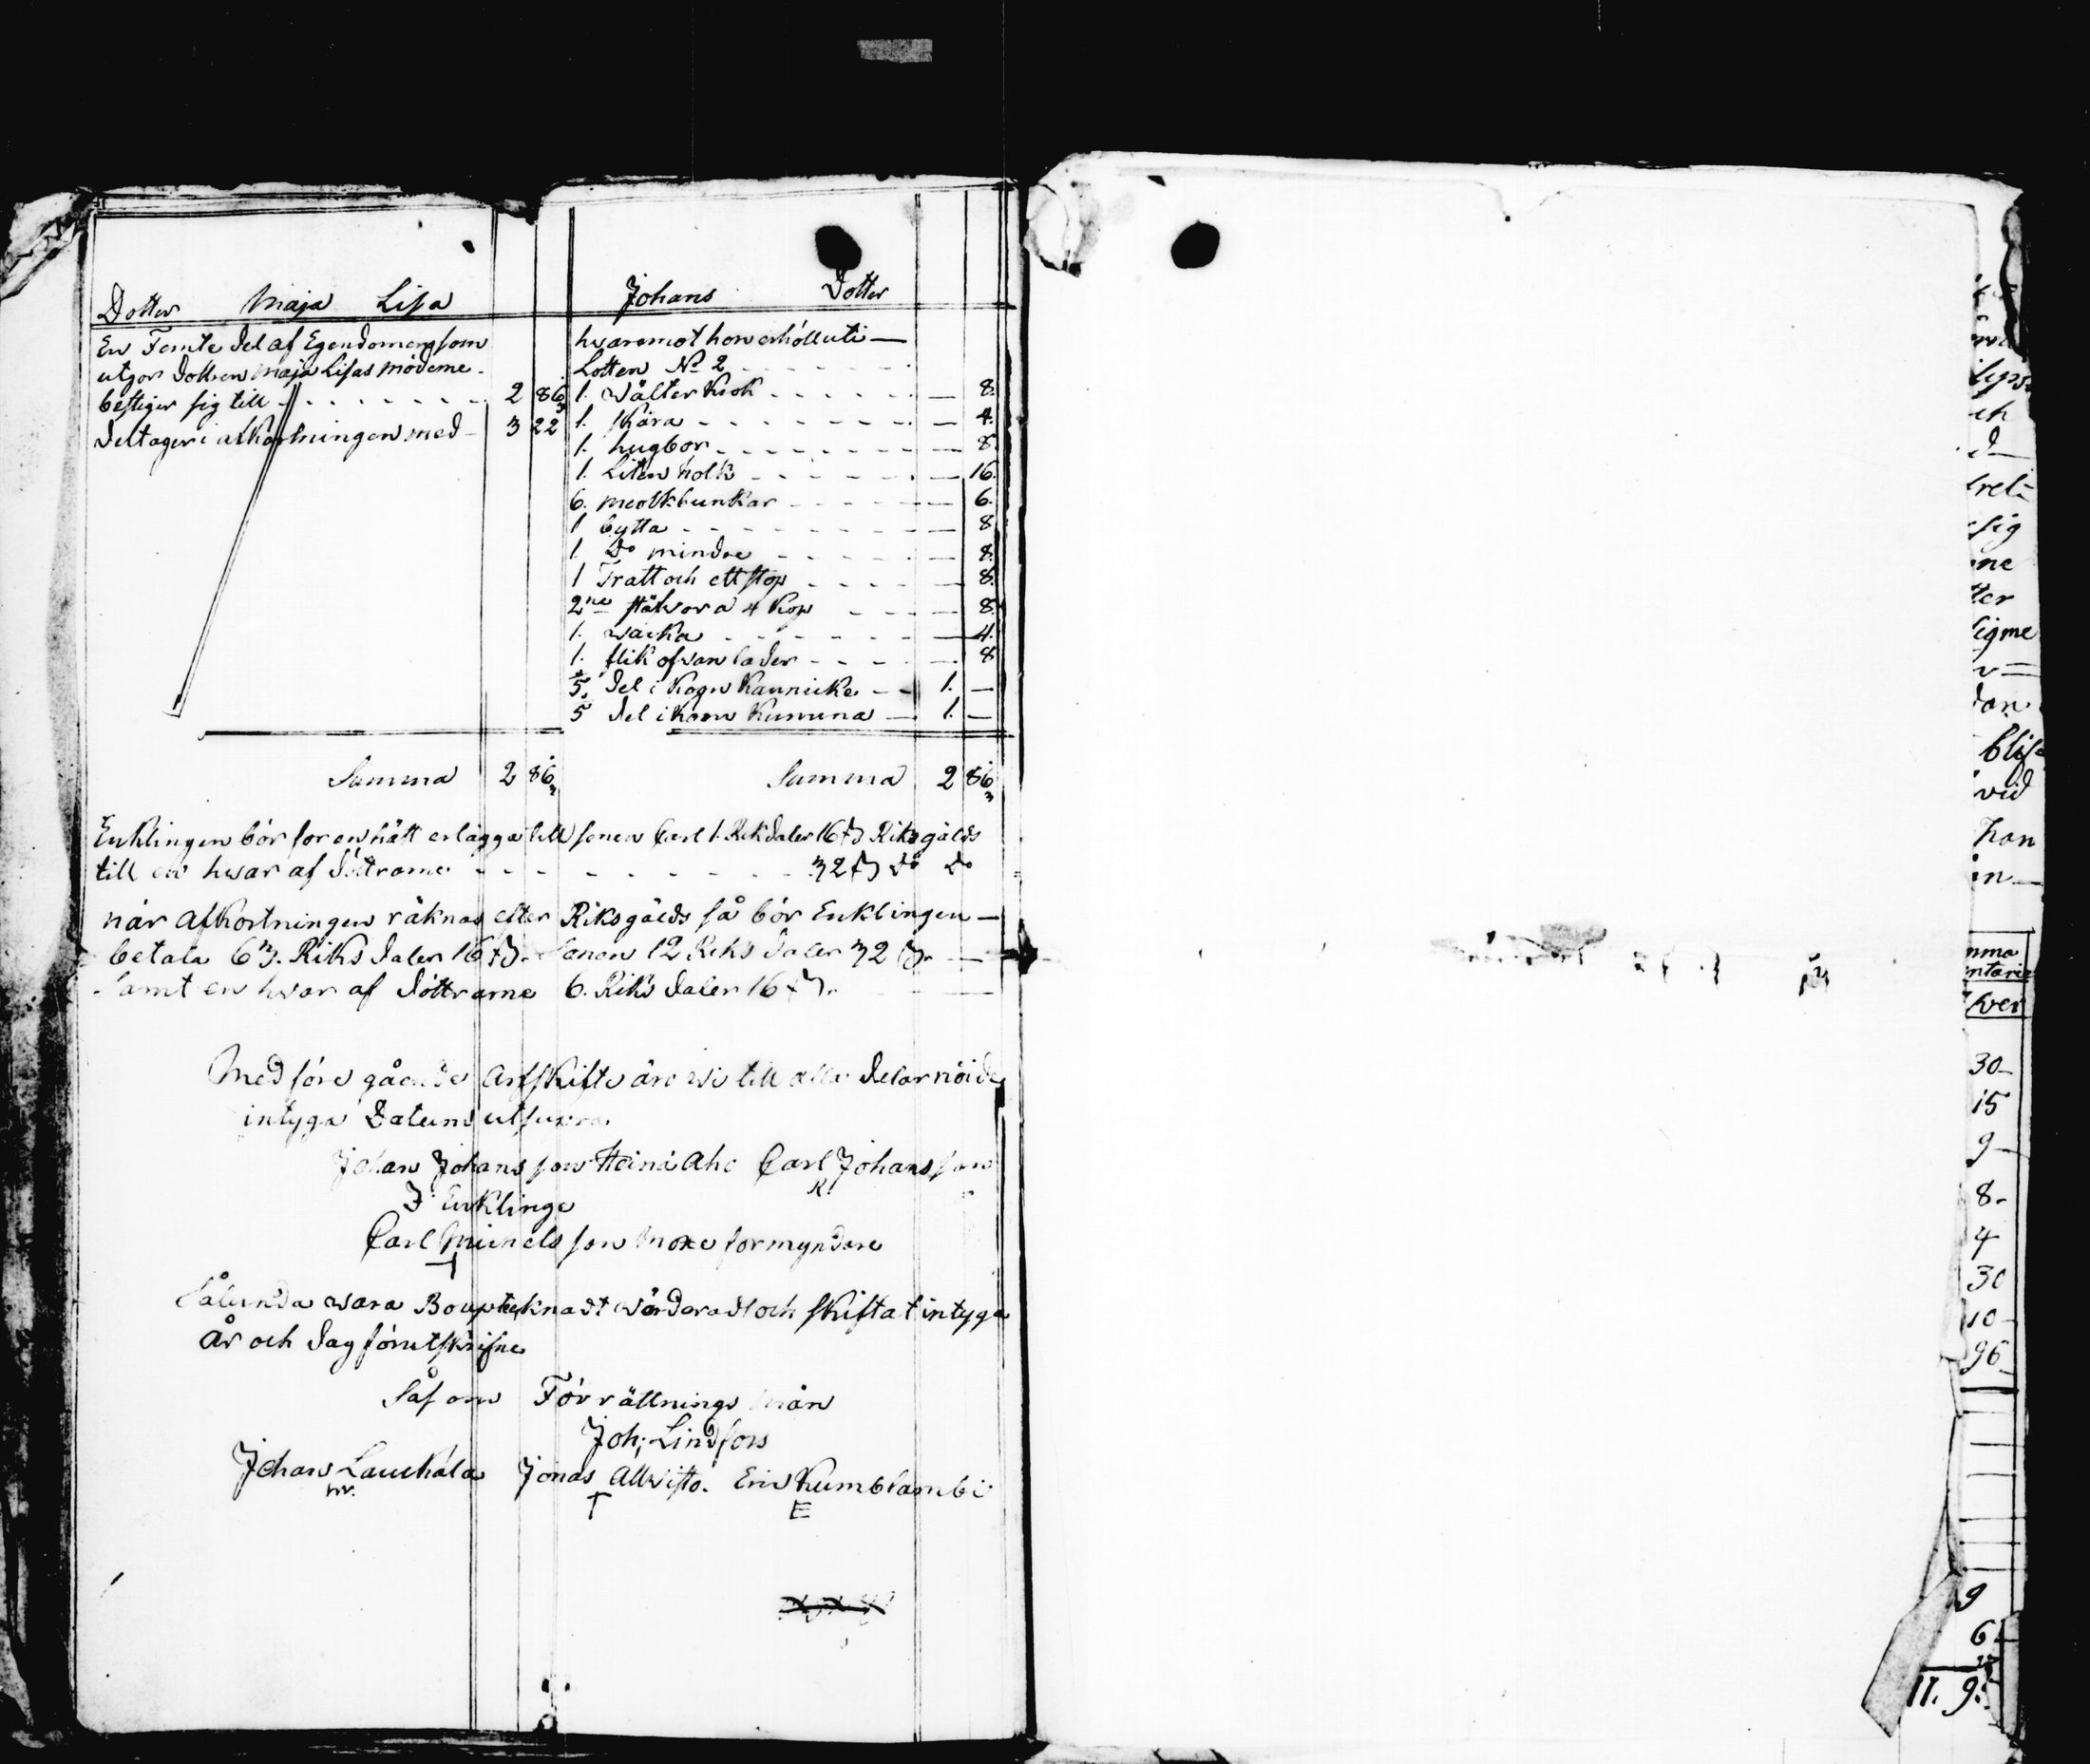 Dotter Maja Lisa
En Femte del af Egendomeng som
utgör dottren Maja Lisas möderne
bestiger sig till 2 86
deltager i afkortningen med 3 22
Summa 2 86
Johans Dotter
hvaremot hon erhöll uti
Lotten No 2
1. wälter krok 8.
1. skära 4.
1. hugbor 8.
1. Liten holk 16.
6. meolkbunkar 6.
1 bytta 8
1. Do mindre 8.
1 Tratt och ett stop 8.
2ne stäfvor a 4 kop 8.
1. wacka 4.
1. flik ofvan läder 8
5 del i kogn Kaunicke 1.
5 del i koen Kununa 1.
Summa 2 86
Enklingen bör för en hätt erlägga till sonen Carl 1. Rikdaler 16 Riksgälds
till en hvar af döttrarne 32 Do Do
när Afkortningen räknas efter Riksgälds så bör Enklingen
betala 63. Riks daler 16 Sonen 12 Riks daler 32
samt en hvar af döttrarne 6. Riks daler 16
Med före gående Arfskifte äre wi till alla delar nöide
intyga Datum utsupra
Johan Johans son Heinä Aho Carl Johans son
Enklinge
Carl son Moxe förmyndare
Sålunda wara Boupteknadt wärderadt och skiftat intyga
År och dag förutskrifne
Såsom Förrättnings män
Joh; Lindfors
Johan Laukala Jonas Allwisto. Eric Kumblambi
T E
sig
ne
ter
vid
han
in
30
15
9
8
4
30
10
96
9
6
11. 9.